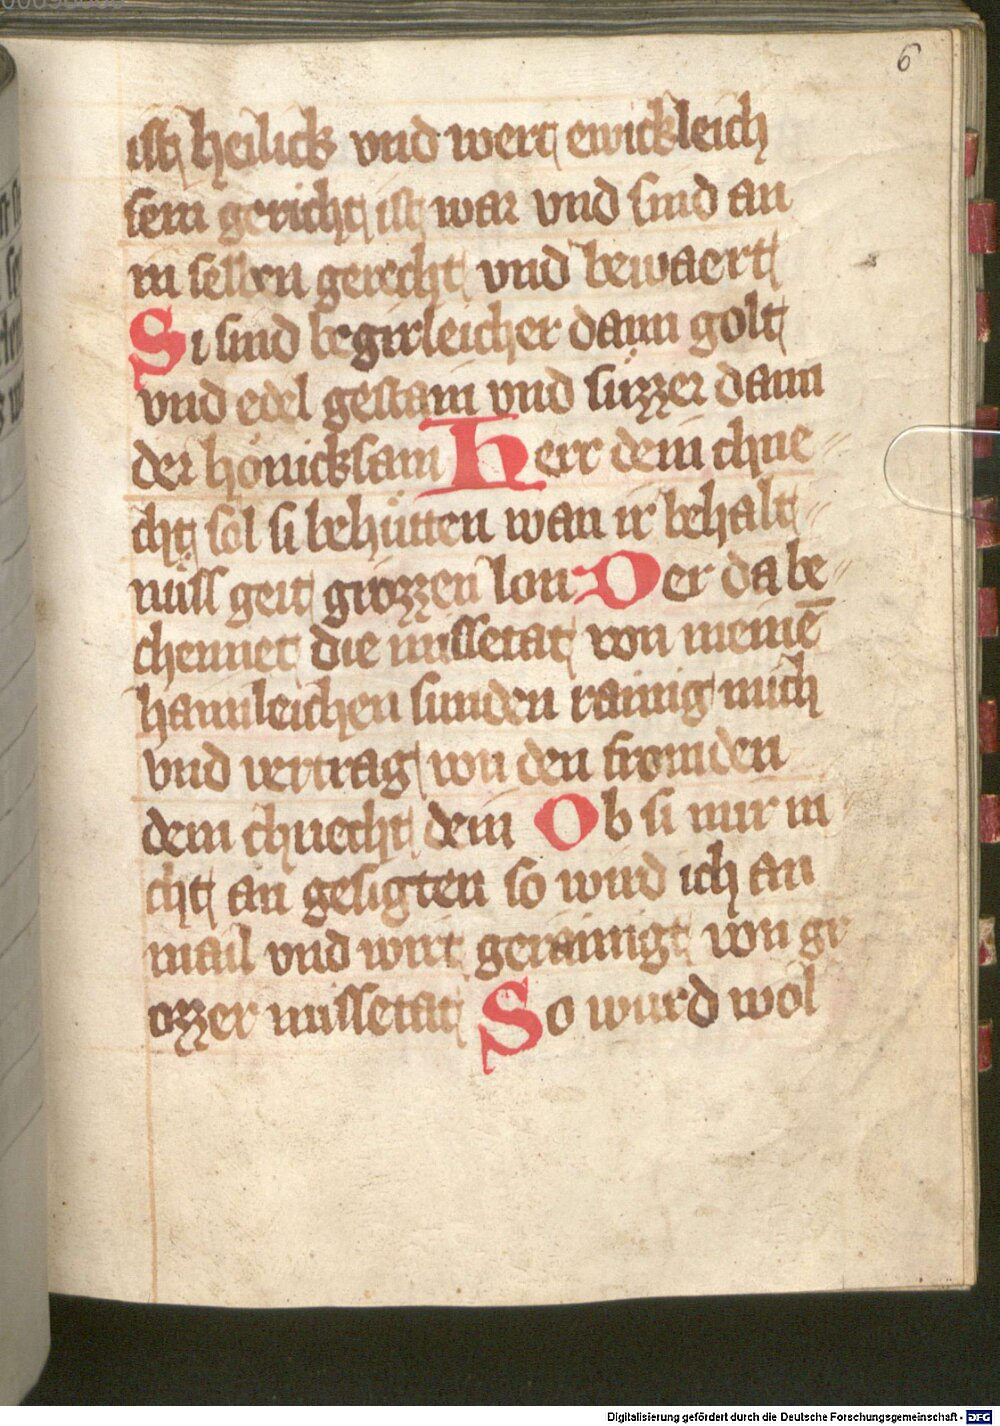 6
ist heilick vnd wert ewickleich
sein gericht ist war vnd sind an
in selben gerecht vnd bewaert
Si sind begirleicher dann golt
vnd edel gestain vnd süzzer dann
der hönicksam Herr dein chne⸗
cht sol si behütten wan ir behalt⸗
nüss geit grozzen lon Der da be⸗
chennet die missetat von meinē
haimleichen sunden rainig mich
vnd vertrag von den fromden
dem chnecht dein Ob si mir ni
cht an gesigten so wird ich an
mail vnd wirt gerainigt von gr
ozzer missetat So wurd wol
Digitalisierung gefördert durch die Deutsche Forschungsgemeinschaft - DFG